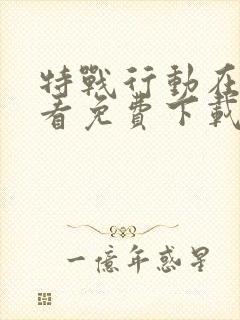 特戰行動在
看免費下載
一億年惑星